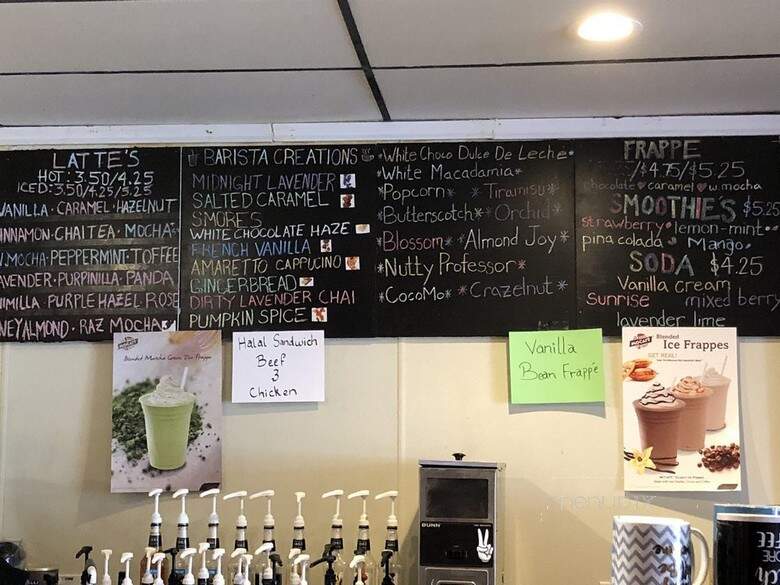 LATTE'S
HOT: 3.50/4.25
ICED: 3.50/4.25/5.25
VANILLA · CARAMEL · HAZELNUT
INNAMON · CHAI TEA · MOCHA
W.MOCHA · PEPPERMINT · TOFFEE
AVENDER · PURPINILLA · PANDA
NIMILLA · PURPLE HAZEL ROSE
NEY ALMOND · RAZ MOCHA
BARISTA CREATIONS
MIDNIGHT LAVENDER
SALTED CARAMEL
SMORES
WHITE CHOCOLATE HAZE
FRENCH VANILLA
AMARETTO CAPPUCINO
GINGERBREAD
DIRTY LAVENDER CHAI
PUMPKIN SPICE
*White Choco Dulce De Leche*
*White Macadamia*
*Popcorn* *Tiramisu*
*Butterscotch* Orchid*
*Blossom* *Almond Joy*
*Nutty Professor*
*CocoMo* *Crazelnut*
FRAPPE
/$4.75/$5.25
chocolate caramel w.mocha
SMOOTHIES $5.25
strawberry lemon-mint
pina colada Mango
SODA $4.25
Vanilla cream
Sunrise mixed berry
lavender lime
Blended Matcha Green Tea Frappe
Halal Sandwich
Beef
3
Chicken
Vanilla
Bean Frappé
Blended
Ice Frappes
GET REAL!
BUNN
menupix